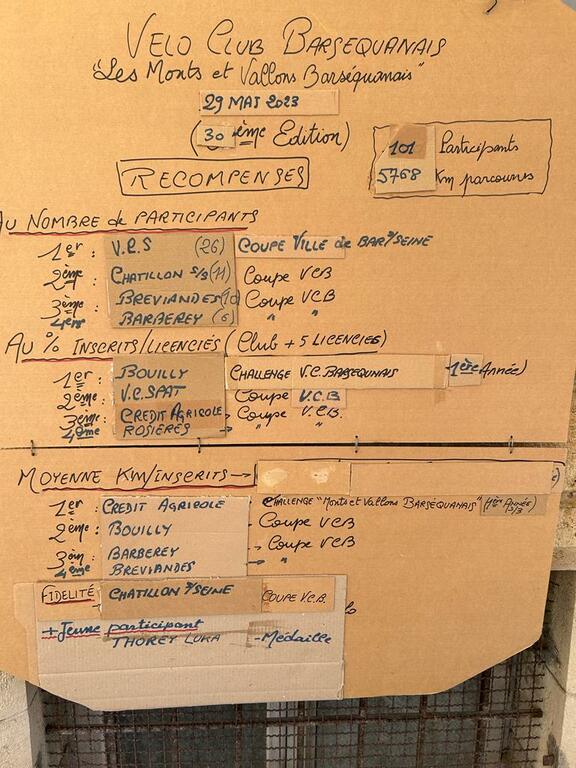 VELO CLUB BARSEQUANAIS
"Les Monts et Vallons Barséquanais"
29 MAI 2023
(30 ème Edition)
101 Participants
5768 Km parcourus
RECOMPENSES
AU NOMBRE de PARTICIPANTS
1er : V.R.S (26) COUPE VILLE de BAR S/SEINE
2ème : CHATILLON S/S (11) Coupe VCB
3ème : BREVIANDES (10) Coupe V.C.B
4ème BARBEREY (6) " "
AU % INSCRITS/LICENCIÉS (Club + 5 LICENCIES)
1er : BOUILLY CHALLENGE V.C. BARSEQUNAIS 1ère Année)
2ème : V.C. SPAT Coupe V.C.B
3ème : CREDIT AGRICOLE → Coupe V.C.B.
4ème ROSIERES → " "
MOYENNE KM/INSCRITS →
1er : CREDIT AGRICOLE CHALLENGE "Monts et Vallons BARSÉQUANAIS" (1ère Année)
2ème : BOUILLY - Coupe VCB
3ème : BARBEREY → Coupe VCB
4ème BREVIANDES → "
FIDELITÉ CHATILLON S/SEINE COUPE V.C.B.
+ Jeune participant
THOREY LUKA - Médaille